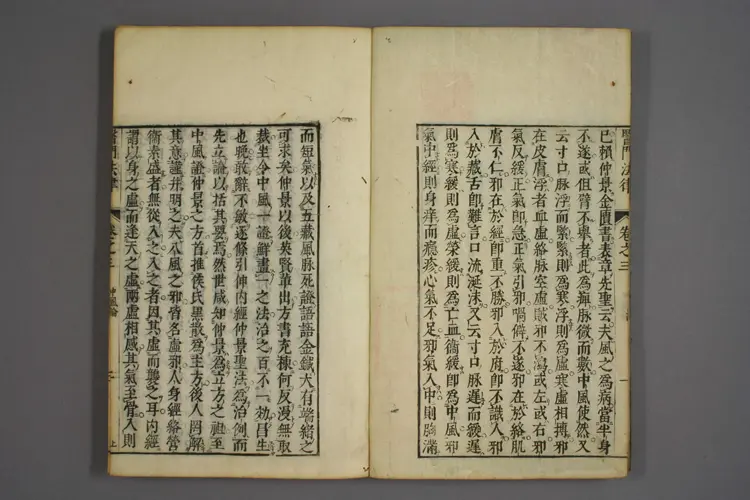 醫門法律
卷之三
一
已賴仲景金匱書表章先聖云夫風之為病當半身
不遂或但臂不舉者此為痹脉微而數中風使然又
云寸口脉浮而緊緊則為寒浮則為虛寒虛相摶邪
在皮膚浮者血虛絡脉空虛賊邪不瀉或左或右邪
氣反緩正氣即急正氣引邪喎僻不遂邪在於絡肌
膚不仁邪在於經即重不勝邪入於府即不識人邪
入於藏舌即難言口流涎沫又云寸口脉遲而緩遲
則為寒緩則為虛榮緩則為亡血衞緩即為中風邪
氣中經則身痒而癮疹心氣不足邪氣入中則胸滿
而短氣以及五藏風脉死證語語金鍼大有端緒之
可求矣仲景以後英賢輩出方書充棟何反漫無取
裁坐令中風一證鮮畫一之法治之百不一効昌生
也晚敢辭不敏逐條引伸內經仲景聖法為治例而
先立論以括其要焉然世咸知仲景為立方之祖至
中風證仲景之方首推侯氏黑散為主方後人罔解
其意謹并明之夫八風之邪皆名虛邪人身經絡營
衞素盛者無從入之入之者因其虛而襲之耳內經
謂以身之虛而逢天之虛兩虛相感其氣至骨入則
醫門法律
卷之三
中風論
上